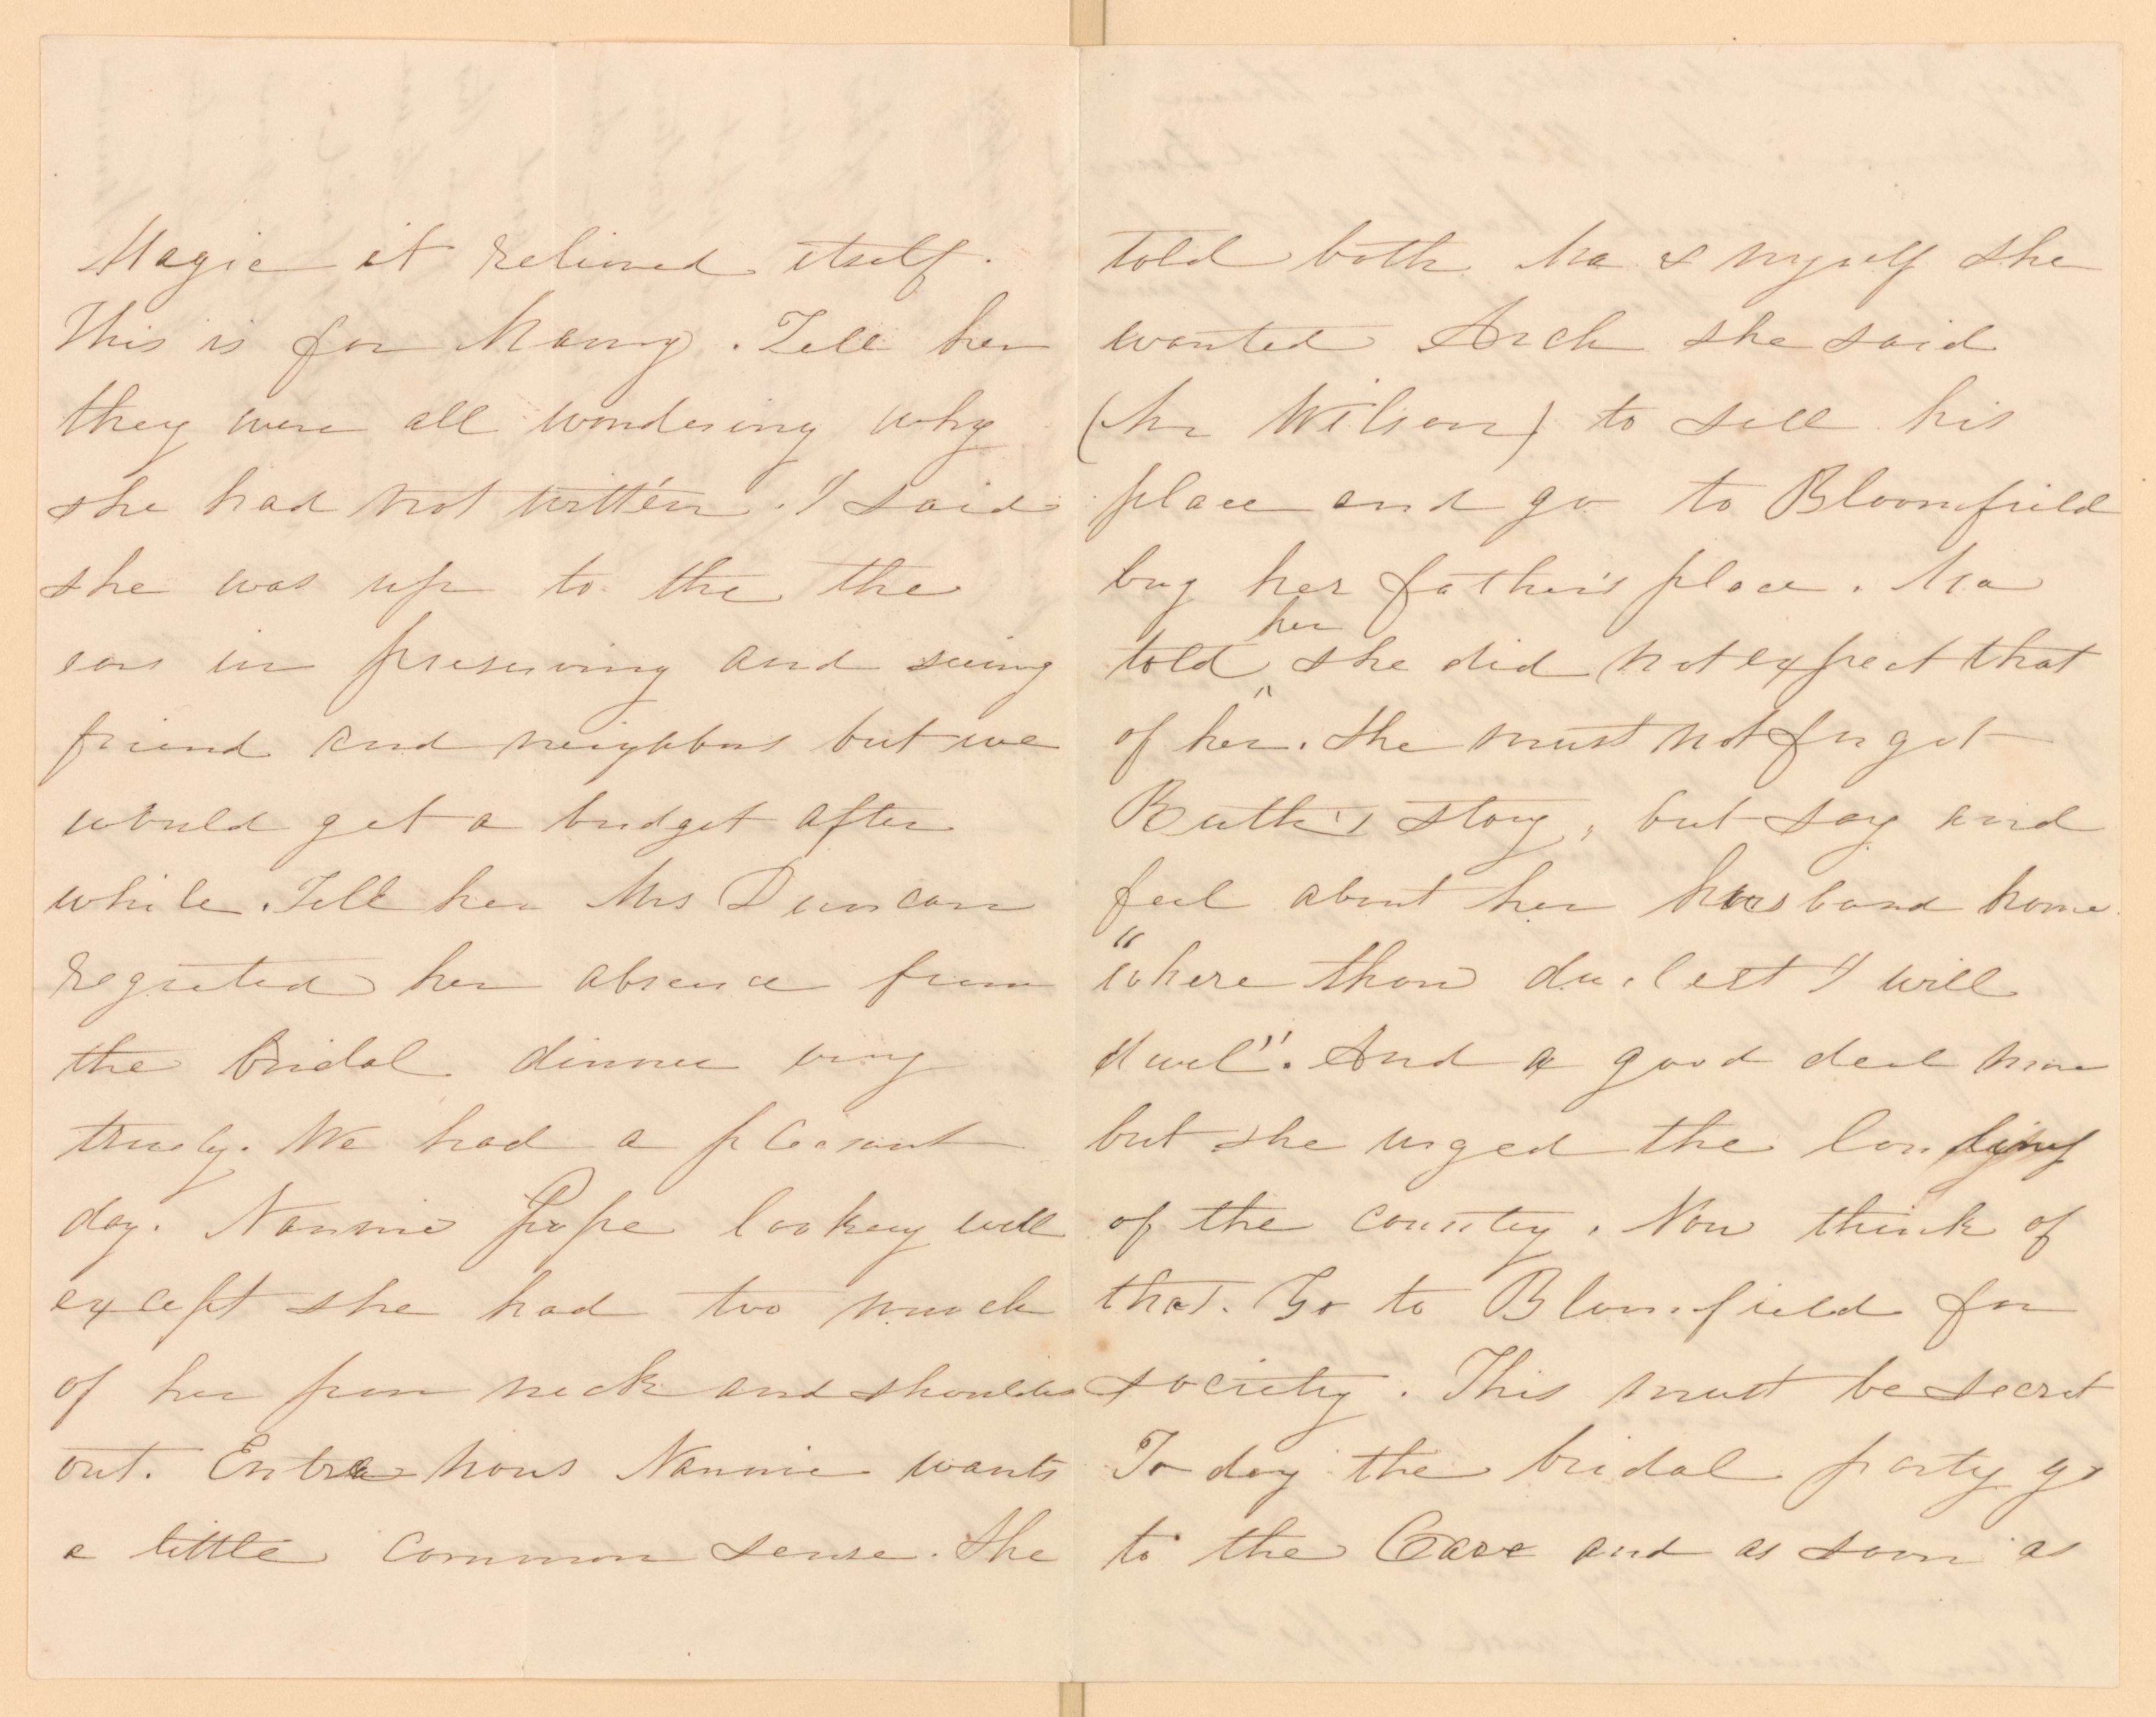 Magic it relieved itself.
This is for Mamy. Tell her
they were all wondering why
she had not written. I said
she was up to the the
ears in preserving and seeing
friend and neighbors but we
would get a budget after
while. Tell her Mrs Duncan
regretted her absence from
the bridal dinner very
truely. We had a pleasant
day. Nannie Pope lookey well
except she had two much
of her poor neck and shoulders
out. Entra nous Nannie wants
a little common sense. She
told both Ma & myself she
wanted Arch she said
(Mr Wilson) to sell his
place and go to Bloomfield
buy her father's place. Ma
told her she did not expect that
of her. She must not forget
Ruth's story, but say and
feel about her husband home.
"where thou dwelest I will
dwel". And a good deal more
but she urged the
of the country. Now think of
that. Go to Bloomfield for
society. This must be secret
To day the bridal party go
to the Cave and as soon as